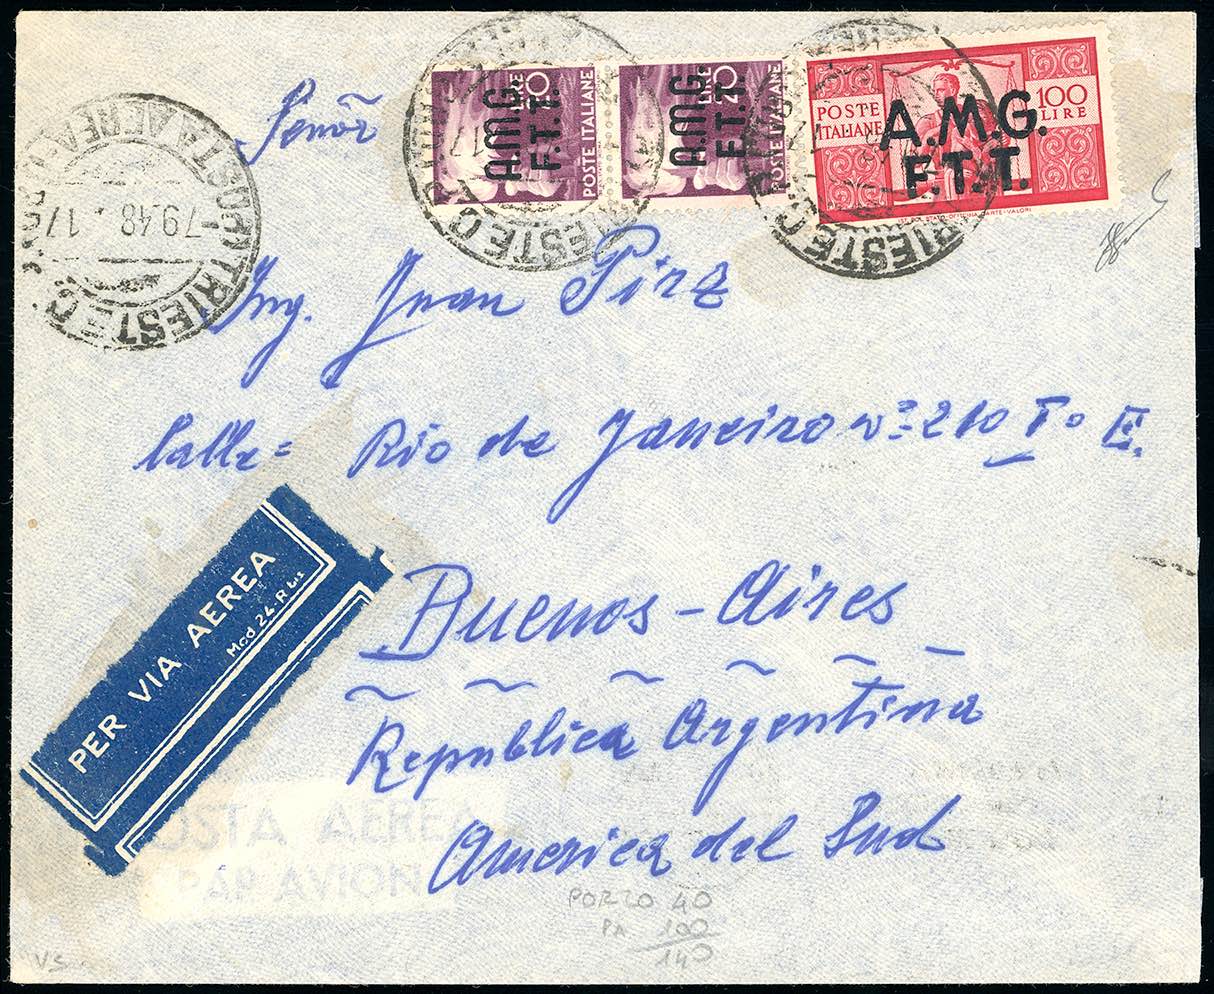 Señor
LIRE 20
POSTE ITALIANE
A.M.G.
F.T.T.
LIRE 20
POSTE ITALIANE
A.M.G.
F.T.T.
POSTE
ITALIANE
100
LIRE
A.M.G.
F.T.T.
IST. POL. STATO-OFFICINA CARTE-VALORI
TRIESTE C.
-7.9.48. 17
POSTA AEREA
TRIESTE C.
TRIESTE C.
Ing. Juan Pirz
Calle= Rio de Janeiro nº=210 Iº E.
PER VIA AEREA
Mod. 24-R bis
Buenos-Aires
Republica Argentina
America del Sud
POSTA AEREA
PAR AVION
PORZO 40
PA 100
140
VS